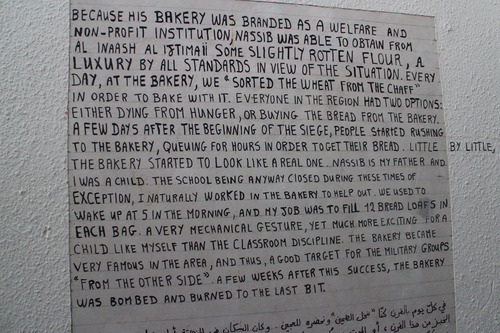 BECAUSE HIS BAKERY WAS BRANDED AS A WELFARE AND
NON-PROFIT INSTITUTION, NASSIB WAS ABLE TO OBTAIN FROM
AL INAASH AL IJTIMAII SOME SLIGHTLY ROTTEN FLOUR, A
LUXURY BY ALL STANDARDS IN VIEW OF THE SITUATION. EVERY
DAY, AT THE BAKERY, WE "SORTED THE WHEAT FROM THE CHAFF"
IN ORDER TO BAKE WITH IT. EVERYONE IN THE REGION HAD TWO OPTIONS:
EITHER DYING FROM HUNGER, OR BUYING THE BREAD FROM THE BAKERY.
A FEW DAYS AFTER THE BEGINNING OF THE SIEGE, PEOPLE STARTED RUSHING
TO THE BAKERY, QUEUING FOR HOURS IN ORDER TO GET THEIR BREAD. LITTLE BY LITTLE,
THE BAKERY STARTED TO LOOK LIKE A REAL ONE. NASSIB IS MY FATHER AND
I WAS A CHILD. THE SCHOOL BEING ANYWAY CLOSED DURING THESE TIMES OF
EXCEPTION, I NATURALLY WORKED IN THE BAKERY TO HELP OUT. WE USED TO
WAKE UP AT 5 IN THE MORNING, AND MY JOB WAS TO FILL 12 BREAD LOAFS IN
EACH BAG. A VERY MECHANICAL GESTURE, YET MUCH MORE EXCITING FOR A
CHILD LIKE MYSELF THAN THE CLASSROOM DISCIPLINE. THE BAKERY BECAME
VERY FAMOUS IN THE AREA, AND THUS, A GOOD TARGET FOR THE MILITARY GROUPS
"FROM THE OTHER SIDE". A FEW WEEKS AFTER THIS SUCCESS, THE BAKERY
WAS BOMBED AND BURNED TO THE LAST BIT.
في كل يوم، بالفرن كنا